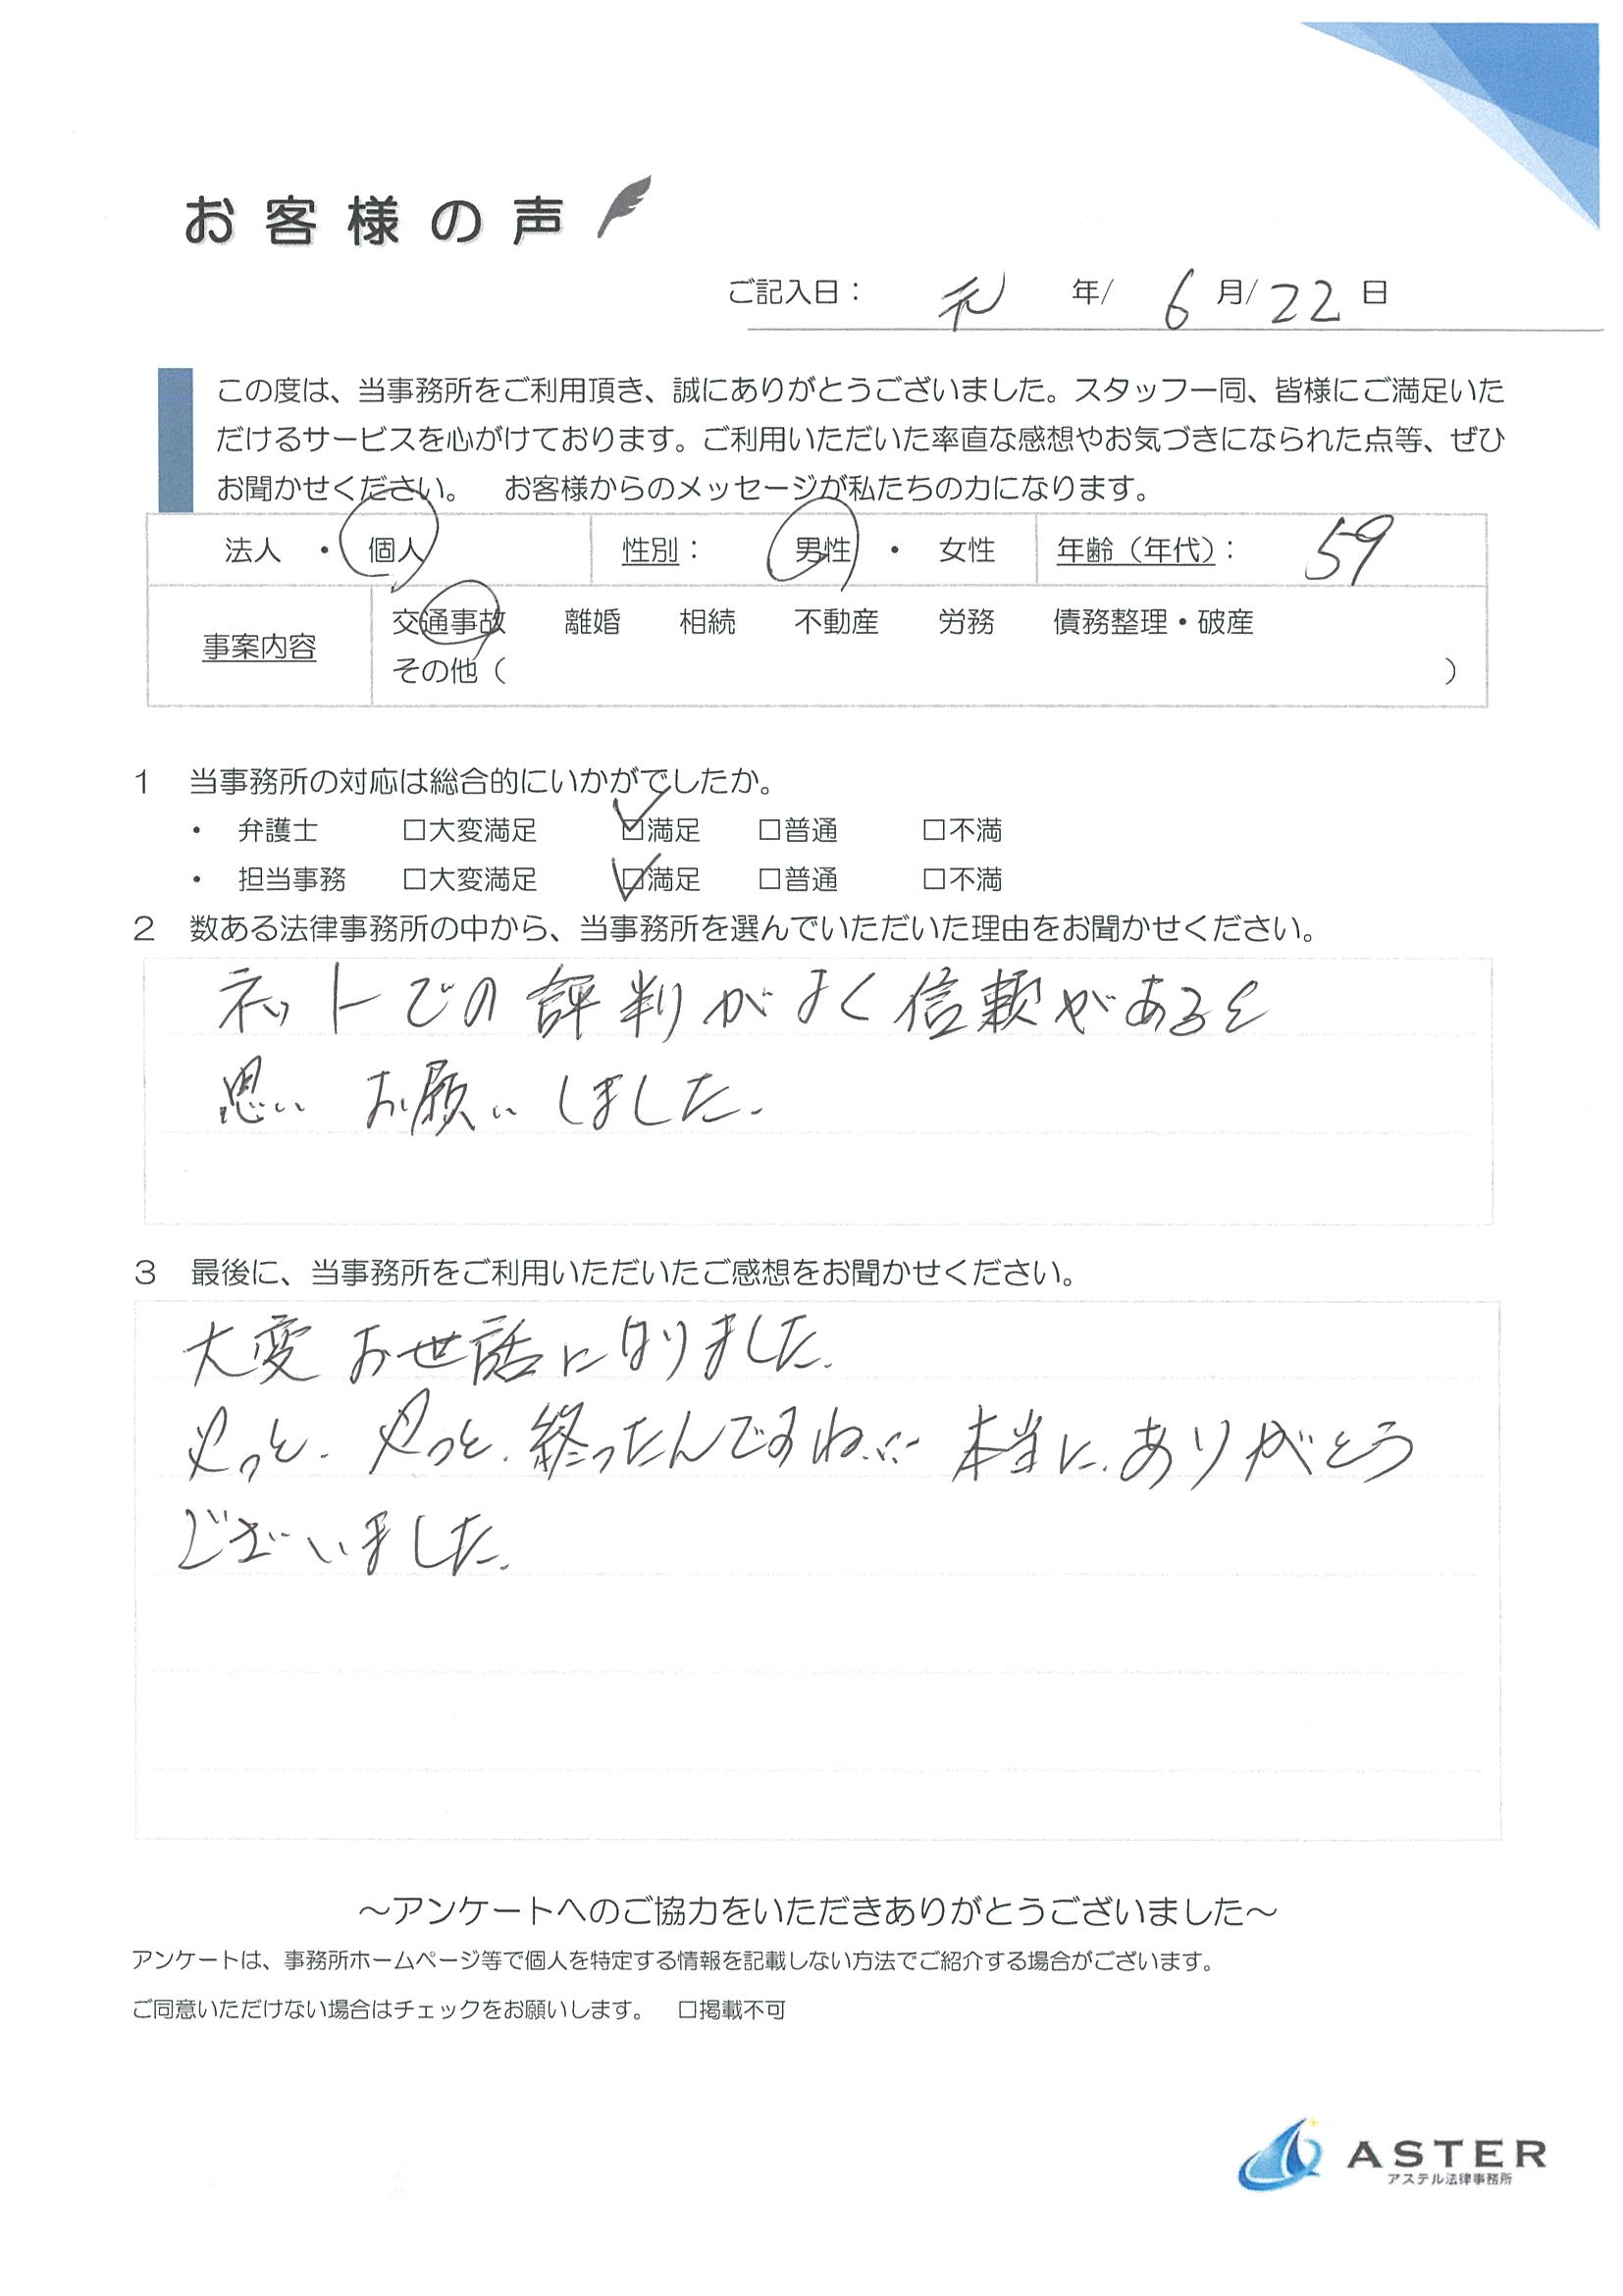 お客様の声
ご記入日： 年/ 6月/22日
この度は、当事務所をご利用頂き、誠にありがとうございました。スタッフ一同、皆様にご満足いた
だけるサービスを心がけております。ご利用いただいた率直な感想やお気づきになられた点等、ぜひ
お聞かせください。 お客様からのメッセージが私たちの力になります。
法人 ・ 個人 性別： 男性 ・ 女性 年齢（年代）： 59
事案内容 交通事故 離婚 相続 不動産 労務 債務整理・破産
その他（ ）
1 当事務所の対応は総合的にいかがでしたか。
・ 弁護士 □大変満足 ☑満足 □普通 □不満
・ 担当事務 □大変満足 ☑満足 □普通 □不満
2 数ある法律事務所の中から、当事務所を選んでいただいた理由をお聞かせください。
ネットでの評判がよく信頼があると
思い お願いしました.
3 最後に、当事務所をご利用いただいたご感想をお聞かせください。
大変お世話になりました.
やっと. やっと. 終ったんですね... 本当に. ありがとう
ございました.
～アンケートへのご協力をいただきありがとうございました～
アンケートは、事務所ホームページ等で個人を特定する情報を記載しない方法でご紹介する場合がございます。
ご同意いただけない場合はチェックをお願いします。 □掲載不可
ASTER
アステル法律事務所